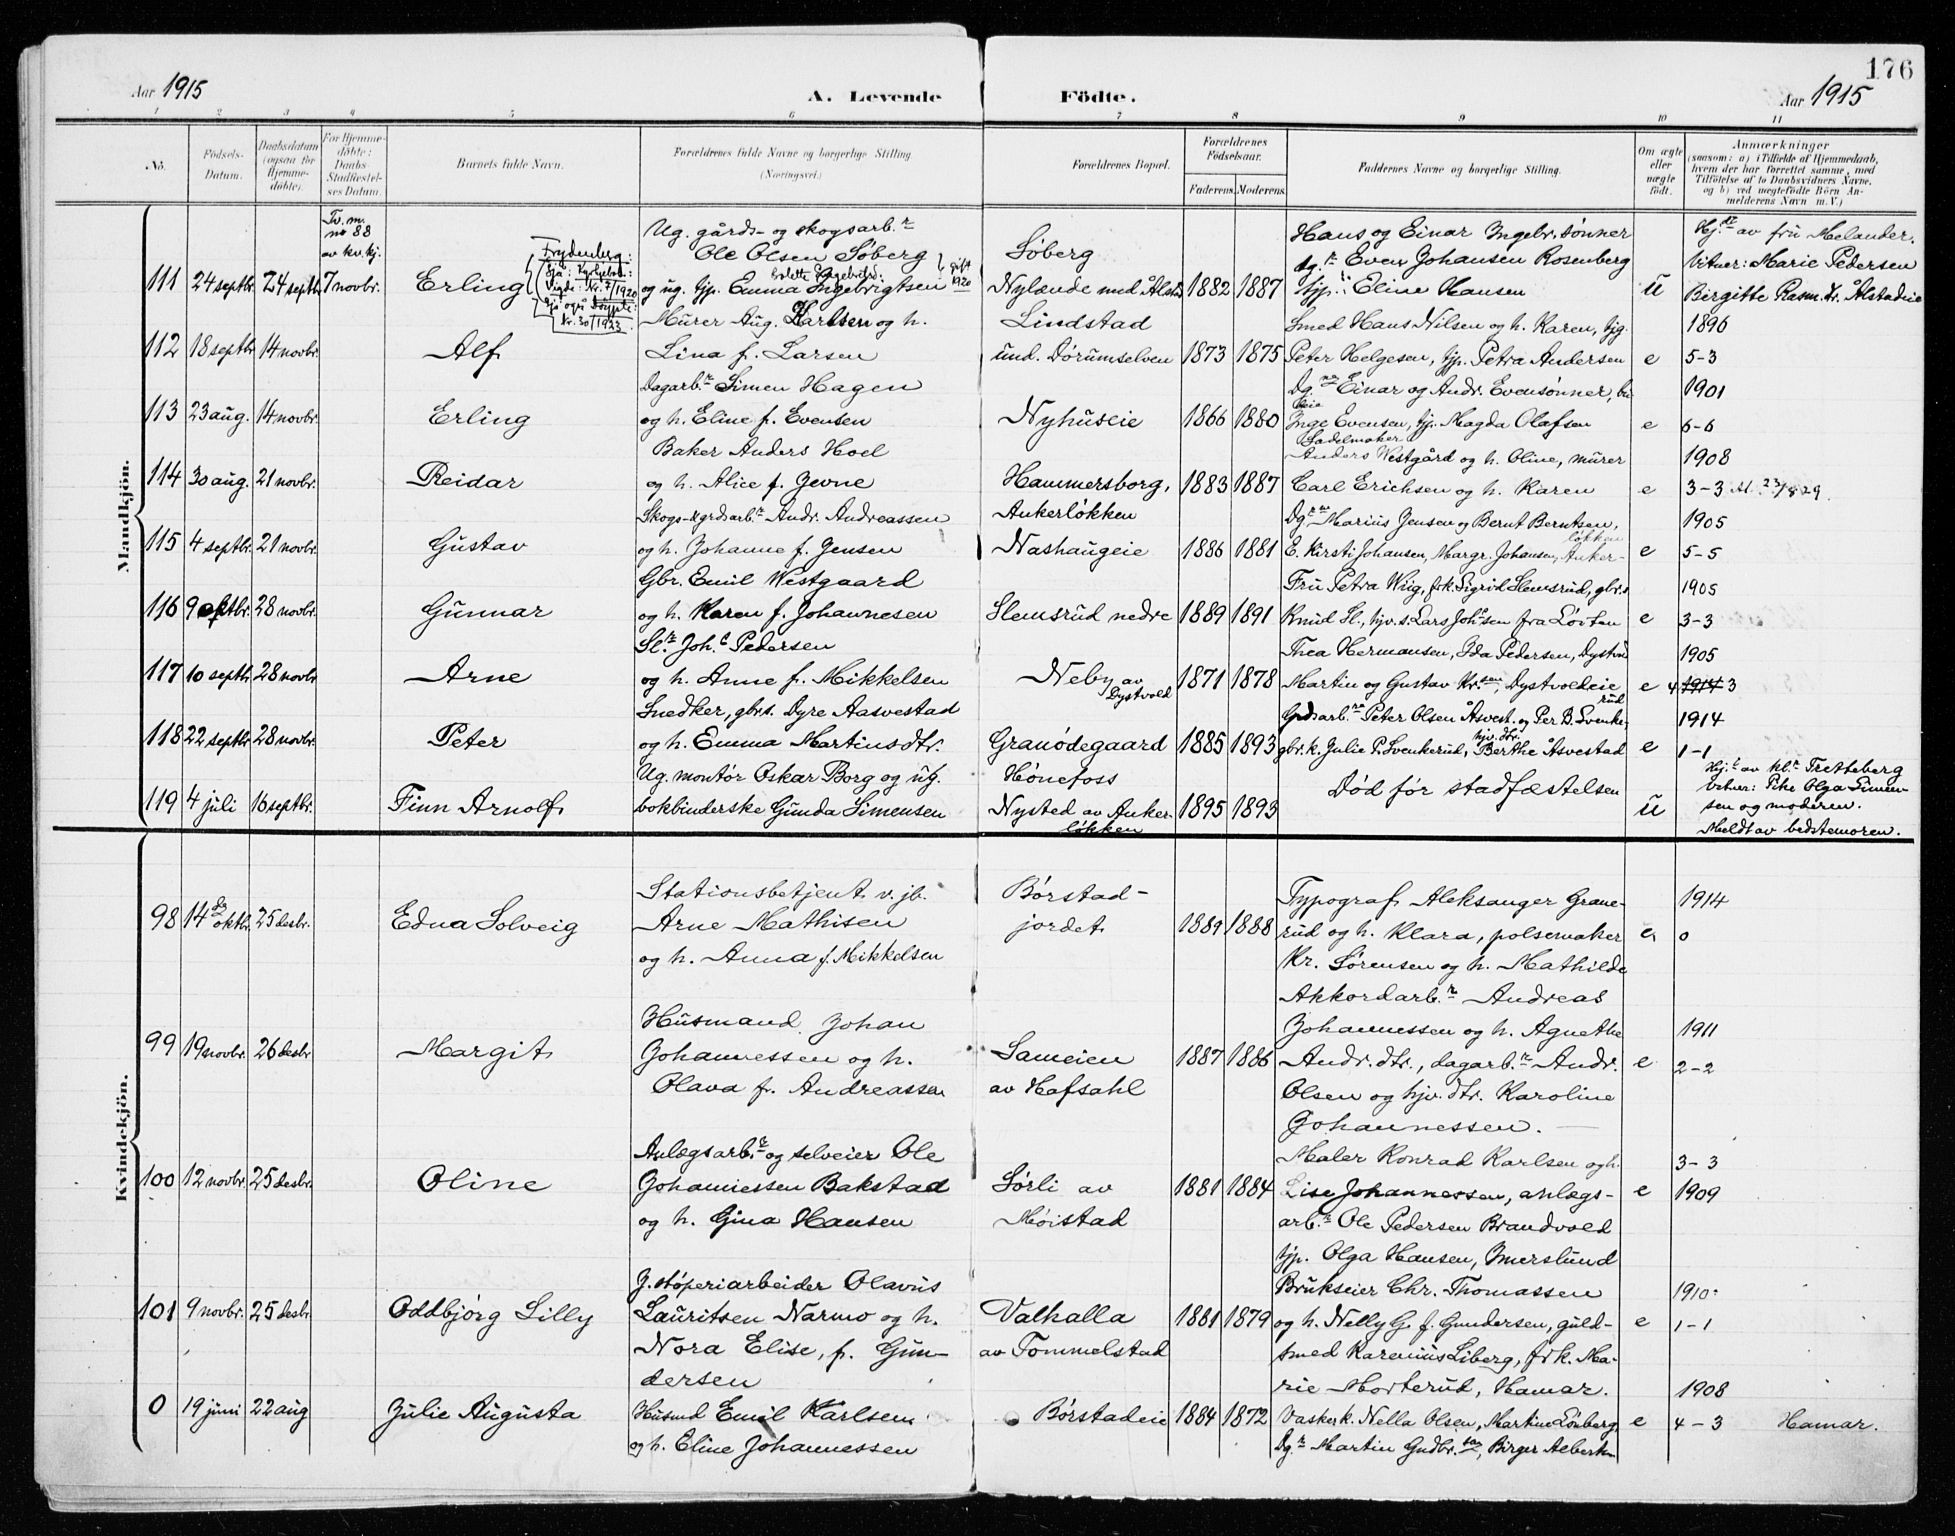 176
Aar 1915
A. Levende
Födte.
Aar 1915
1 2 3 4 5 6 7 8 9 10 11
No.
Födsels-Datum.
Daabsdatum (ogsaa for Hjemme-döbte).
For Hjemme-döbte: Daabs-Stadfæstelses Datum.
Barnets fulde Navn.
Forældrenes fulde Navne og borgerlige Stilling (Næringsvei.)
Forældrenes Bopæl.
Forældrenes Födselsaar.
Faderens. Moderens.
Faddernes Navne og borgerlige Stilling.
Om ægte eller uægte födt.
Anmærkninger
(saasom: a) i Tilfælde af Hjemmedaab, hvem der har forrettet samme, med Tilföielse af to Daabsvidners Navne, og b) ved uegtefödte Börn Anmelderens Navn m. V.)
Mandkjön.
Tv. m. nº 88 av kv. kj.
111 24 septbr. 24 septb. 7 novbr. Erling
Frydenberg:
Nr. 7/1920
Nr. 30/1923
Ug. gårds- og skogsarb.r
Ole Olsen Søberg
og ug. tjp. Emma Ingebrigtsen
gift 1920
Søberg
Nylænde ved Ålstad 1882 1887
Hans og Einar Ingebr. sønner
Dg.r Even Johansen Rosenberg
tjp. Eline Hansen
u
Hj.dt av fru Melander.
Vitner: Marie Pedersen
Birgitte Rasm. dr. Ålstadeie
112 18 septbr 14 novbr. Alf
Murer Aug. Karlsen og h.
Lina f. Larsen
Lindstad
und. Dørumselven 1873 1875
Smed Hans Nilsen og h. Karen, tjg.
Peter Helgesen, tjp. Petra Andersen
e
1896
5-3
113 23 aug. 14 novbr. Erling
Dagarb.r Simen Hagen
og h. Eline f. Evensen
Nyhuseie 1866 1880
Dg. Einar og Andr. Evensønner,
Inge Evensen, tjp. Magda Olafsen
e
1901
6-6
114 30 aug. 21 novbr. Reidar
Baker Anders Hoel
og h. Alice f. Jevne
Hammersborg,
Ankerløkken 1883 1887
Sadelmaker
Anders Westgård og h. Oline, murer
Carl Erichsen og h. Karen
e
1908
3-3
115 4 septbr. 21 novbr. Gustav
Skogs- & grdsarb.r Andr. Andreassen
og h. Johanne f. Jensen
Nashaugeie 1886 1881
Dg. Marius Jensen og Bernt Berntsen,
E. Kirsti Johansen, Margr. Johansen, Anker-
løkken
e
1905
5-5
116 28 novbr. Gunnar
Gbr. Emil Westgaard
og h. Karen f. Johannesen
Slemsrud nedre 1889 1891
Fru Petra Wiig, frk. Sigrid Slemsrud, gbr.s
Knud Sl., hjv. s. Lars Johsen fra Løiten
e
1905
3-3
117 10 septb 28 novbr Arne
Sl.r Joh.s Pedersen
og h. Anne f. Mikkelsen
Neby av
Dystvold 1871 1878
Thea Hermansen, Ida Pedersen, Dystvo
Martin og Gustav Kr.sen, Dystvoldeie
e
1905
4 1914 3
118 22 septbr 28 novbr. Peter
Snedker, gbrs. Dyre Aasvestad
og h. Emma Martinsdtr.
Granødegaard 1885 1893
Grdsarb. Peter Olsen Åsvest. og Per B. Svenke-
rud
gbr. k. Julie P. Svenkerud, hjv. dtr. Berthe Åsvestad
e
1914
1-1
119 4 juli 16 septbr. Finn Arnolf
Ug. montør Oskar Borg og ug.
bokbinderske Gunda Simensen
Hønefoss
Nysted av Anker-
løkken 1895 1893
Død før stadfæstelsen
u
Hj.t av kl.r Tretteberg
Vitner: Pike Olga Simen-
sen og moderen.
Meldt av bedstemoren.
Kvindekjön.
98 14 oktb. 25 desbr. Edna Solveig
Stationsbetjent v. jb.
Arne Mathisen
og h. Anna f. Mikkelsen
Børstad-
jordet 1889 1888
Typograf Aleksanger Grane-
rud og h. Klara, pølsemaker
Kr. Sørensen og h. Mathilde
e
1914
0
99 19 novbr. 26 desbr Margit
Husmand Johan
Johannessen og h.
Olava f. Andreassen
Sameien
av Hafsahl 1887 1886
Akkordarb.r Andreas
Johannessen og h. Agnethe
Andr. dtr., dagarb.r Andr.
Olsen og hjv. dtr. Karoline
Johannessen.
e
1911
2-2
100 12 novbr. 25 desbr. Oline
Anlægsarb.r og selveier Ole
Johannessen Bakstad
og h. Gina Hansen
Sørli av
Møistad 1881 1884
Maler Konrad Karlsen og h.
Lise Johannessen, anlægs-
arb.r Ole Pedersen Brandvold
tjp. Olga Hansen, Imerslund
e
3-3
1909
101 9 novbr. 25 desbr. Oddbjørg Lilly
J. støperiarbeider Olavus
Lauritsen Narmo og h.
Nora Elise, f. Gun-
dersen
Valhalla
av Tommelstad 1881 1879
Brukseier Chr. Thomassen
og h. Nelly G. f. Gundersen, guld-
smed Karenius Liberg, frk. Ma-
rie Morterud, Hamar.
e
1910
1-1
0 19 juni 22 aug Julie Augusta
Husmd Emil Karlsen
og h. Eline Johannessen
Børstadeie 1884 1872
Vaskerk. Nella Olsen, Martine Lønberg,
Dg.r Martin Gudbr.sen, Birger Albertsen
e
1908
4-3 Hamar.